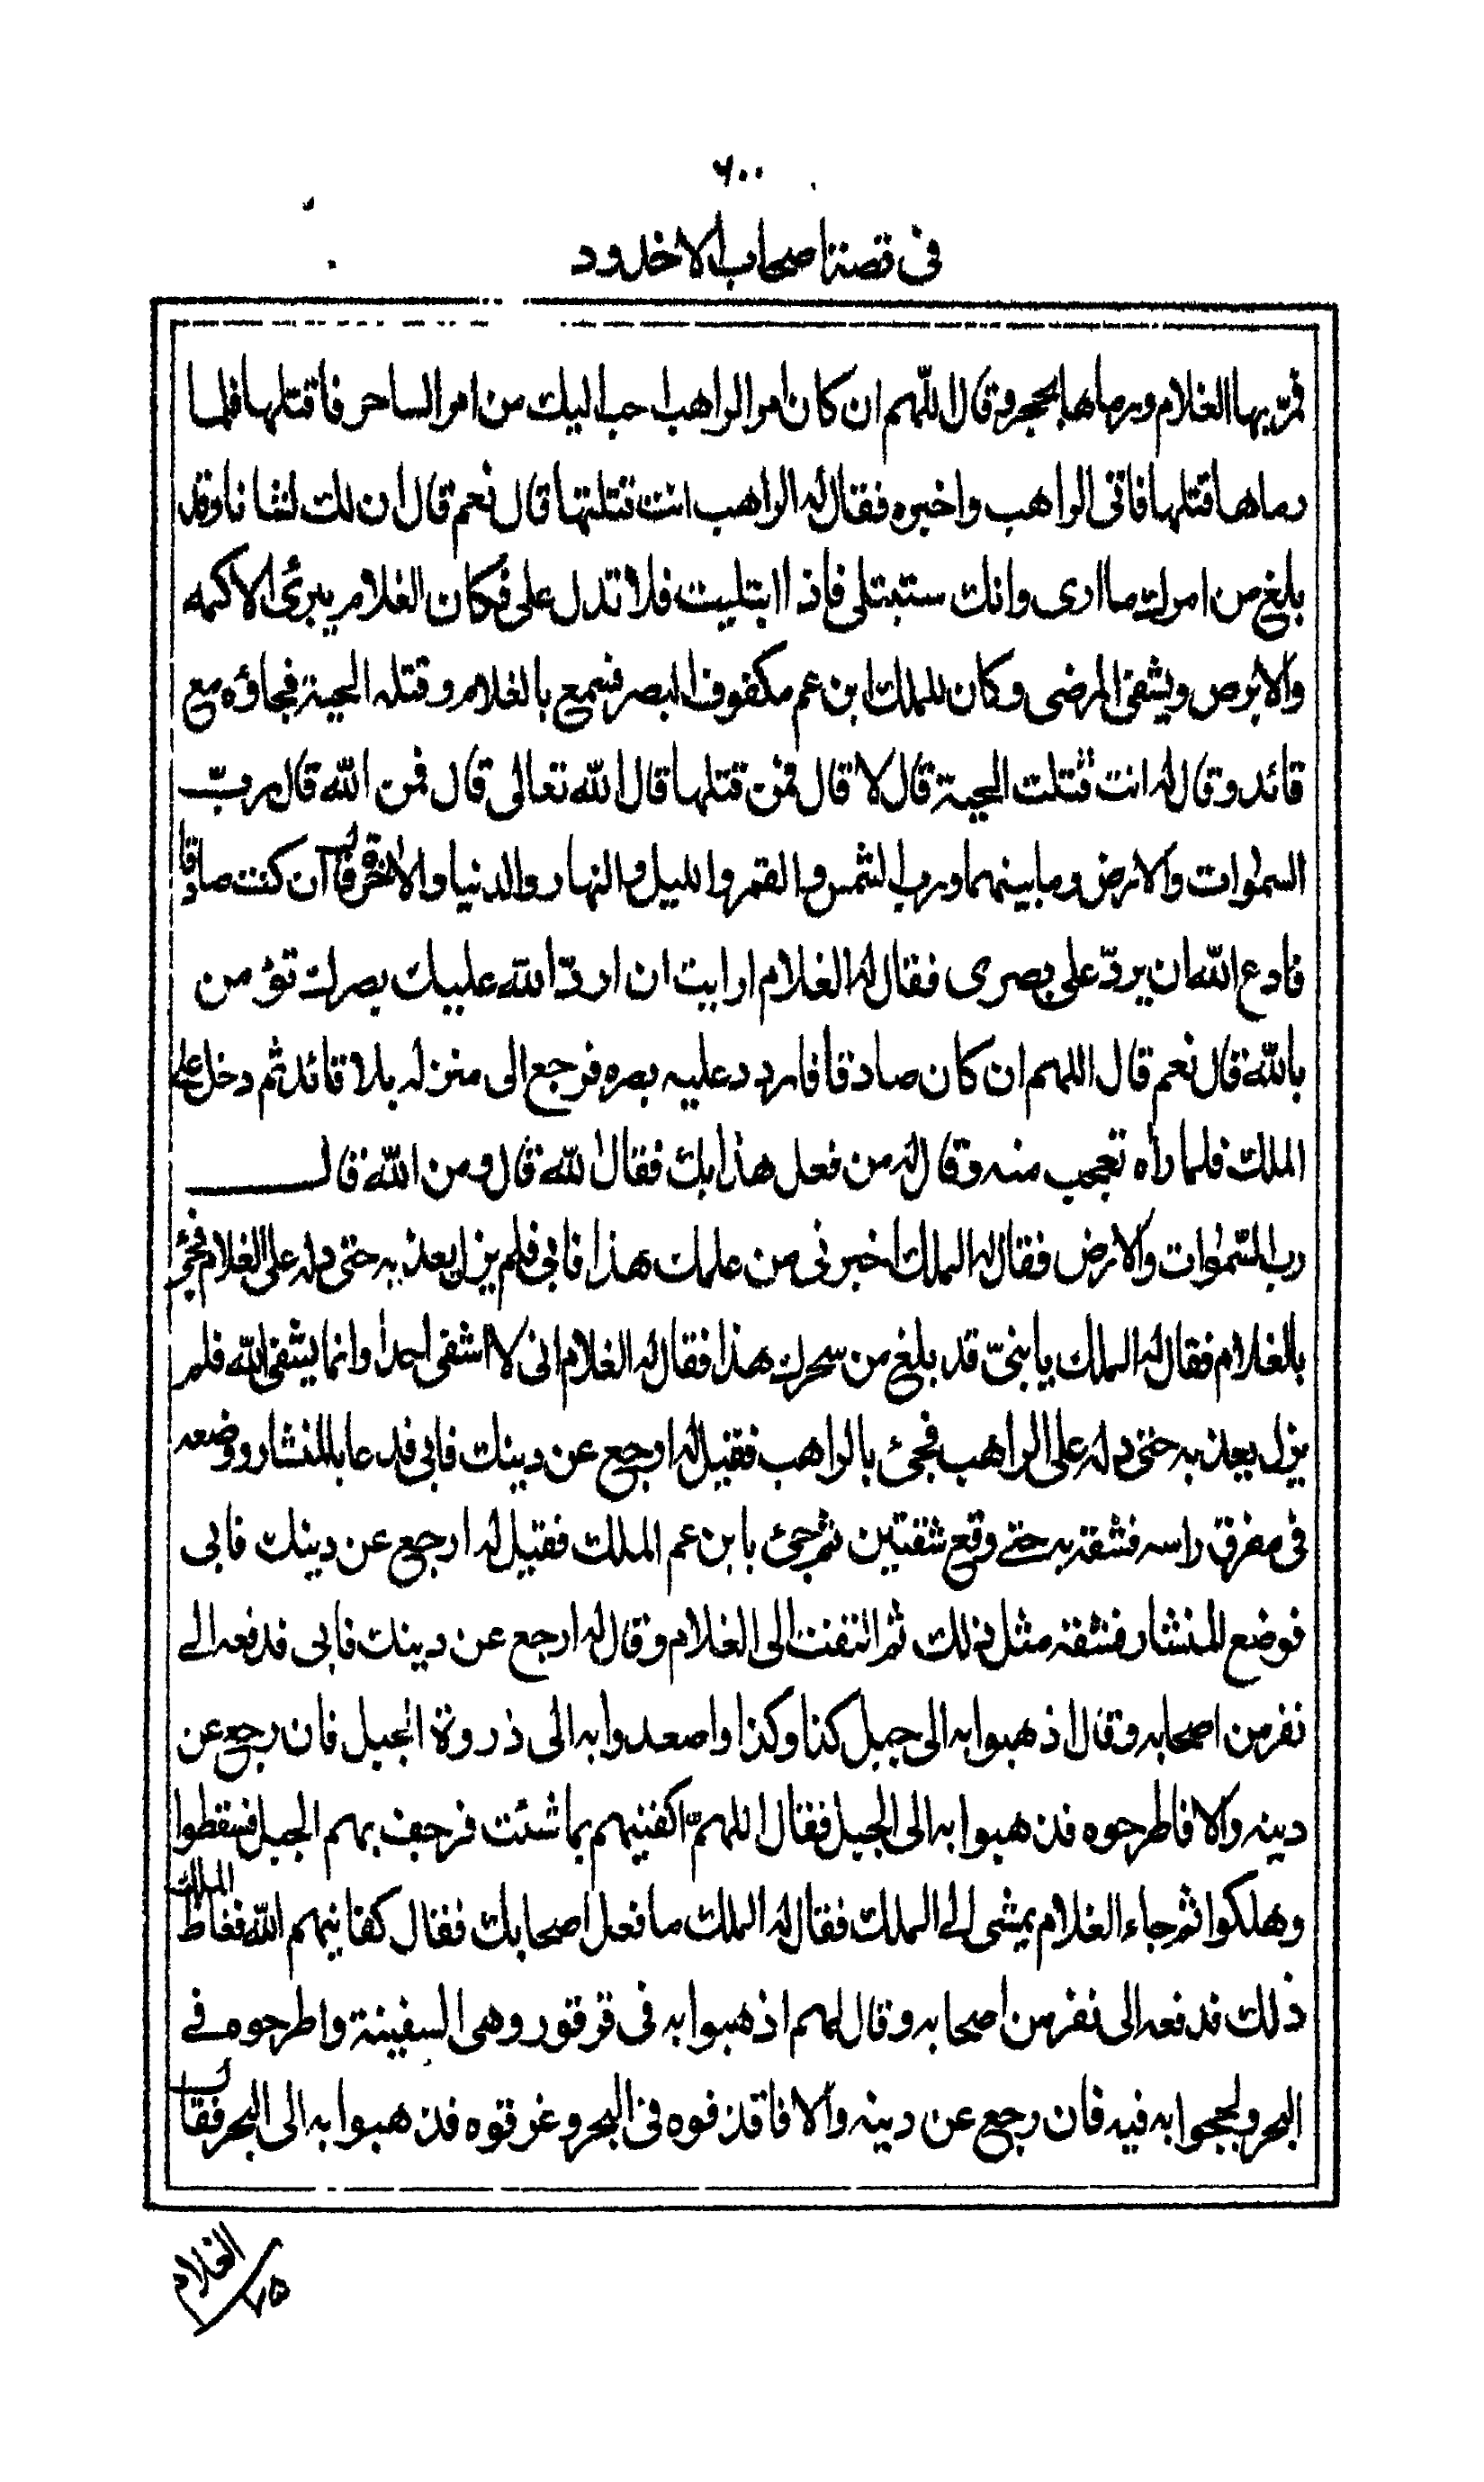 ٦٠٠
فى قصة اصحاب الاخدود
فمرّ بها الغلام ورماها بحجر وقال اللّهم ان كان امر الراهب احب اليك من امر الساحر فاقتلها فلما
رماها قتلها فاتى الراهب واخبره فقال له الراهب انت قتلتها قال نعم قال ان لك لشانا وقد
بلغ من امرك ما ارى وانك ستبتلى فاذا ابتليت فلا تدل على فكان الغلام يبرئ الاكمه
والابرص ويشفى المرضى وكان للملك ابن عم مكفوف البصر فسمع بالغلام وقتله الحية فجاؤه مع
قائد وقال له انت قتلت الحية قال لا قال فمن قتلها قال الله تعالى قال فمن الله قال ربّ
السمٰوات والارض وما بينهما ورب الشمس والقمر والليل والنهار والدنيا والاٰخرة قال ان كنت صادقا
فادع الله ان يردّ على بصرى فقال له الغلام ارايت ان اردّ الله عليك بصرك تؤمن
بالله قال نعم قال اللهم ان كان صادقا فاردد عليه بصره فرجع الى منزله بلا قائد ثم دخل على
الملك فلما راٰه تعجب منه وقال له من فعل هذا بك فقال الله قال ومن الله قال
رب السّمٰوات والارض فقال له الملك اخبرنى من علمك هذا فابى فلم يزل يعذبه حتى دله على الغلام فجئ
بالغلام فقال له الملك يا بنىّ قد بلغ من سحرك هذا فقال له الغلام انى لا اشفى احدا وانما يشفى الله فلم
يزل يعذبه حتى دله على الراهب فجئ بالراهب فقيل له ارجع عن دينك فابى فدعا بالمنشار ووضعه
فى مفرق راسه فشقه به حتے وقع شقتين ثم جئ بابن عم الملك فقيل له ارجع عن دينك فابى
فوضع المنشار فشقه مثل ذلك ثم التفت الى الغلام وقال له ارجع عن دينك فابى فدفعه الے
نفر من اصحابه وقال اذهبوا به الى جبل كذا وكذا واصعدوا به الى ذروة الجبل فان رجع عن
دينه والا فاطرحوه فذهبوا به الى الجبل فقال اللهمّ اكفنيهم بما شئت فرجف بهم الجبل فسقطوا
وهلكوا ثم جاء الغلام يمشى الے الملك فقال له الملك ما فعل اصحابك فقال كفانيهم الله فغاظ الملك
ذلك فدفعه الى نفر من اصحابه وقال لهم اذهبوا به فى قرقور وهى السفينة واطرحوه فے
البحر ولججوا به فيه فان رجع عن دينه والا فاقذفوه فى البحر وغرقوه فذهبوا به الى البحر فقال
الغلام
٧٥